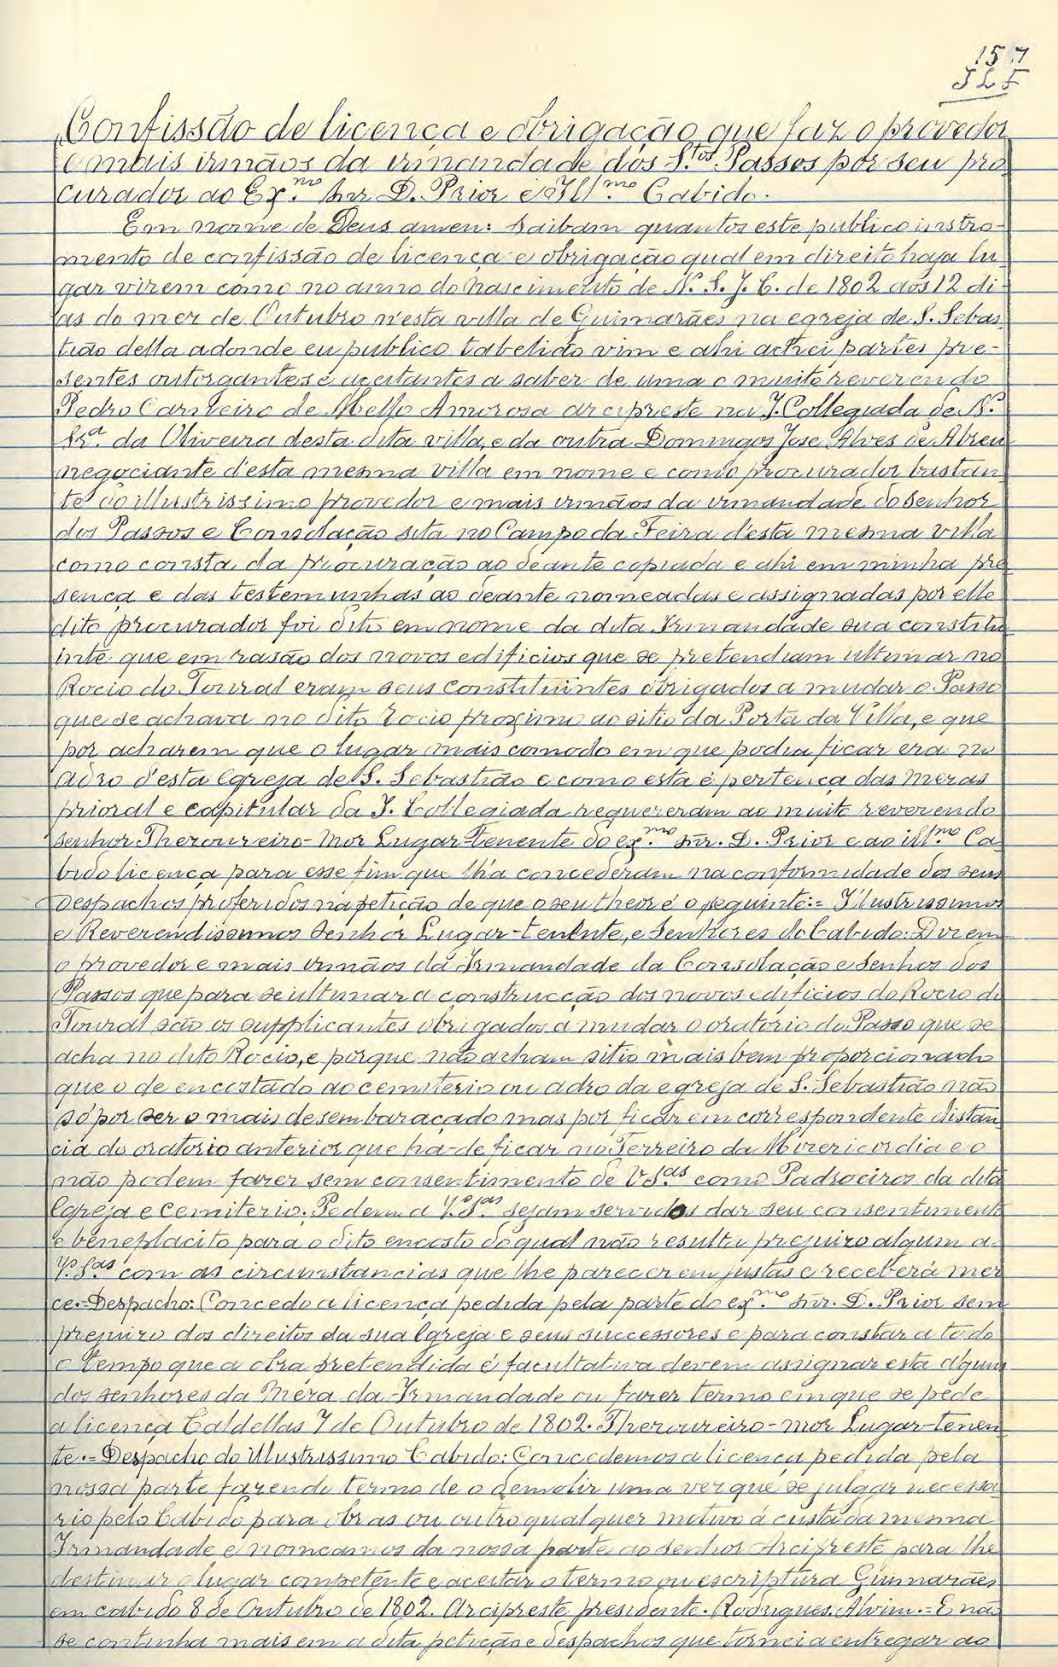 157
J L F
Confissão de licença e obrigação que faz o provedor
e mais irmãos da irmandade dos S.tos Passos por seu pro
curador ao Ex.mo Snr D. Prior e Ill.mo Cabido.
Em nome de Deus amen: Saibam quantos este publico instro-
mento de confissão de licença e obrigação qual em direito haja lu-
gar virem como no anno do nascimento de N. S. J. C. de 1802 aos 12 di-
as do mez de Outubro n'esta villa de Guimarães na egreja de S. Sebas-
tião della adonde eu publico tabelião vim e ahi achei partes pre-
sentes outorgantes e aceitantes a saber de uma o muito reverendo
Pedro Carneiro de Mello Amorosa arcipreste na J. Collegiada de N.
Sr.a da Oliveira desta dita villa, e da outra Domingos Jose Alves de Abreu
negociante d'esta mesma villa em nome e como procurador bastan-
te do illustrissimo provedor e mais irmãos da irmandade do Senhor
dos Passos e Consolação sita no Campo da Feira d'esta mesma villa
como consta da procuração ao deante copiada e ahi em minha pre
sença e das testemunhas ao deante nomeadas e assignadas por elle
dito procurador foi dito em nome da dita Irmandade sua constitu
inte que em rasão dos novos edificios que se pretendiam ultimar no
Rocio do Toural eram seus constituintes obrigados a mudar o Passo
que se achava no dito rocio proximo ao sitio da Porta da Villa, e que
por acharem que o lugar mais comodo em que podia ficar era no
adro d'esta Egreja de S. Sebastião e como esta é pertença das Mezas
prioral e capitular da J. Collegiada requereram ao muito reverendo
senhor Thezoureiro-mor Lugar-Tenente do ex.mo snr. D. Prior e ao ill.mo Ca-
bido licença para esse fim que lh'a concederam na conformidade dos seus
despachos proferidos na petição de que o seu theor é o seguinte:= Illustrissimos
e Reverendissimos Senhor Lugar-tenente, e Senhores do Cabido: Dizem
o provedor e mais irmãos da Irmandade da Consolação e Senhor dos
Passos que para se ultimar a construcção dos novos edificios do Rocio do
Toural são os supplicantes obrigados a mudar o oratorio do Passo que se
acha no dito Rocio, e porque não acham sitio mais bem proporcionado
que o de encostado ao cemiterio ou adro da egreja de S. Sebastião não
só por ser o mais desembaraçado mas por ficar em correspondente distan
cia do oratorio anterior que ha-de ficar no Terreiro da Mizericordia e o
não podem fazer sem consentimento de V.S.as como Padroeiros da dita
Egreja e Cemiterio: Pedem a V.S.as sejam servidos dar seu consentimento
e beneplacito para o dito encosto do qual não resulta prejuizo algum a
V.S.as com as circumstancias que lhe parecerem justas e receberá mer
ce.= Despacho: Concedo a licença pedida pela parte do ex.mo snr. D. Prior sem
prejuizo dos direitos da sua Egreja e seus successores e para constar a todo
o tempo que a obra pretendida é facultativa devem assignar esta algum
dos senhores da Meza da Irmandade ou fazer termo em que se pede
a licença Caldellas 7 de Outubro de 1802. Thezoureiro-mor Lugar-tenen-
te.= Despacho do Illustrissimo Cabido: Concedemos a licença pedida pela
nossa parte fazendo termo de o demolir uma vez que se julgar necessa-
rio pelo Cabido para obras ou outro qualquer motivo á custa da mesma
Irmandade e nomeamos da nossa parte ao senhor Arcipreste para lhe
destinar o lugar competente e aceitar o termo ou escriptura Guimarães
em cabido 8 de Outubro de 1802. Arcipreste presidente. Rodrigues. Alvim.= E não
se continha mais em a dita petição e despachos que tornei a entregar ao